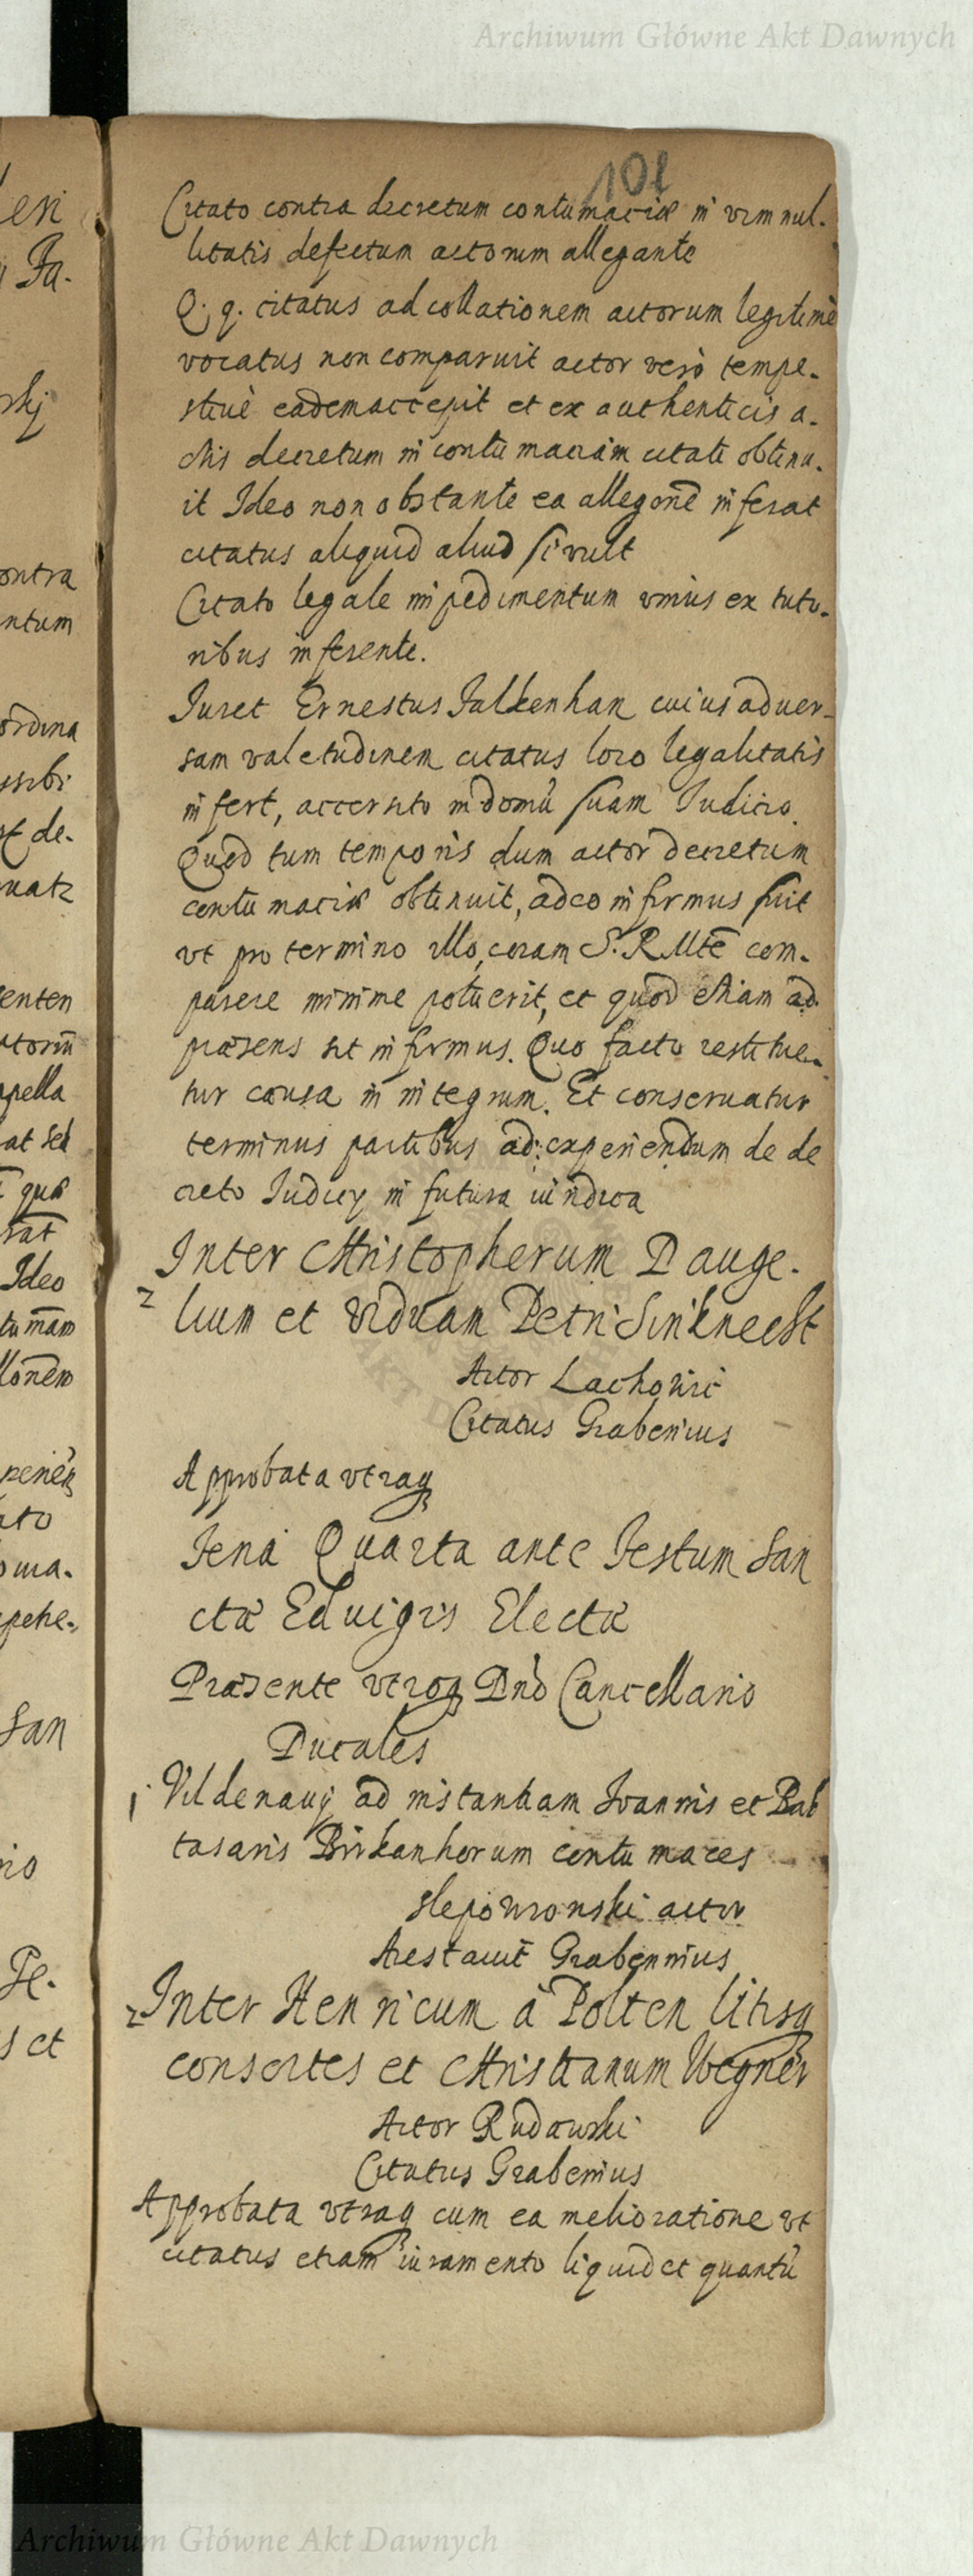 Archiwum Główne Akt Dawnych
101
Citato contra decretum contumaciæ in vim nul-
litatis defectum actorum allegante
Q. q. citatus ad collationem actorum legitimè
vocatus non comparuit actor verò tempe-
stiuè eadem accepit et ex authenticis a-
ctis decretum in contumaciam citati obtinu-
it Ideo non obstante ea allegone inferat
citatus aliquid aliud si vult
Citato legale impedimentum vnius ex tuto-
ribus inferente.
Iuret Ernestus Falkenhan cuius aduer-
sam valetudinem citatus loco legalitatis
infert, accersito in domũ suam Iudicio.
Quod tum temporis dum actor decretum
contumaciæ obtinuit, adeo infirmus fuit
vt pro termino illo, coram S. R. Mtē com-
parere minime potuerit, et quod etiam ad
præsens sit infirmus. Quo facto restitue-
tur causa in integrum. Et conseruatur
terminus partibus ad experiendum de de
creto Iudicij in futura iuridica
Inter Christopherum Dauge-
2 lium et viduam Petri Sinknecht
Actor Lachowic
Citatus Grabenius
Approbata vtraq
Feria Quarta ante Festum San
ctæ Eduigis Electæ
Præsente vtroq Dnō Cancellario
Ducales
1 Vildenauij ad instantiam Ioannis et Bal
tasaris Birkanhorum contumaces
Slepowronski actor
Arestauit Grabennius
2 Inter Henricum à Polten litisq
consortes et Christianum Wegner
Actor Rudawski
Citatus Grabenius
Approbata vtraq cum ea melioratione vt
citatus etiam iuramento liquidet quantũ
Archiwum Główne Akt Dawnych